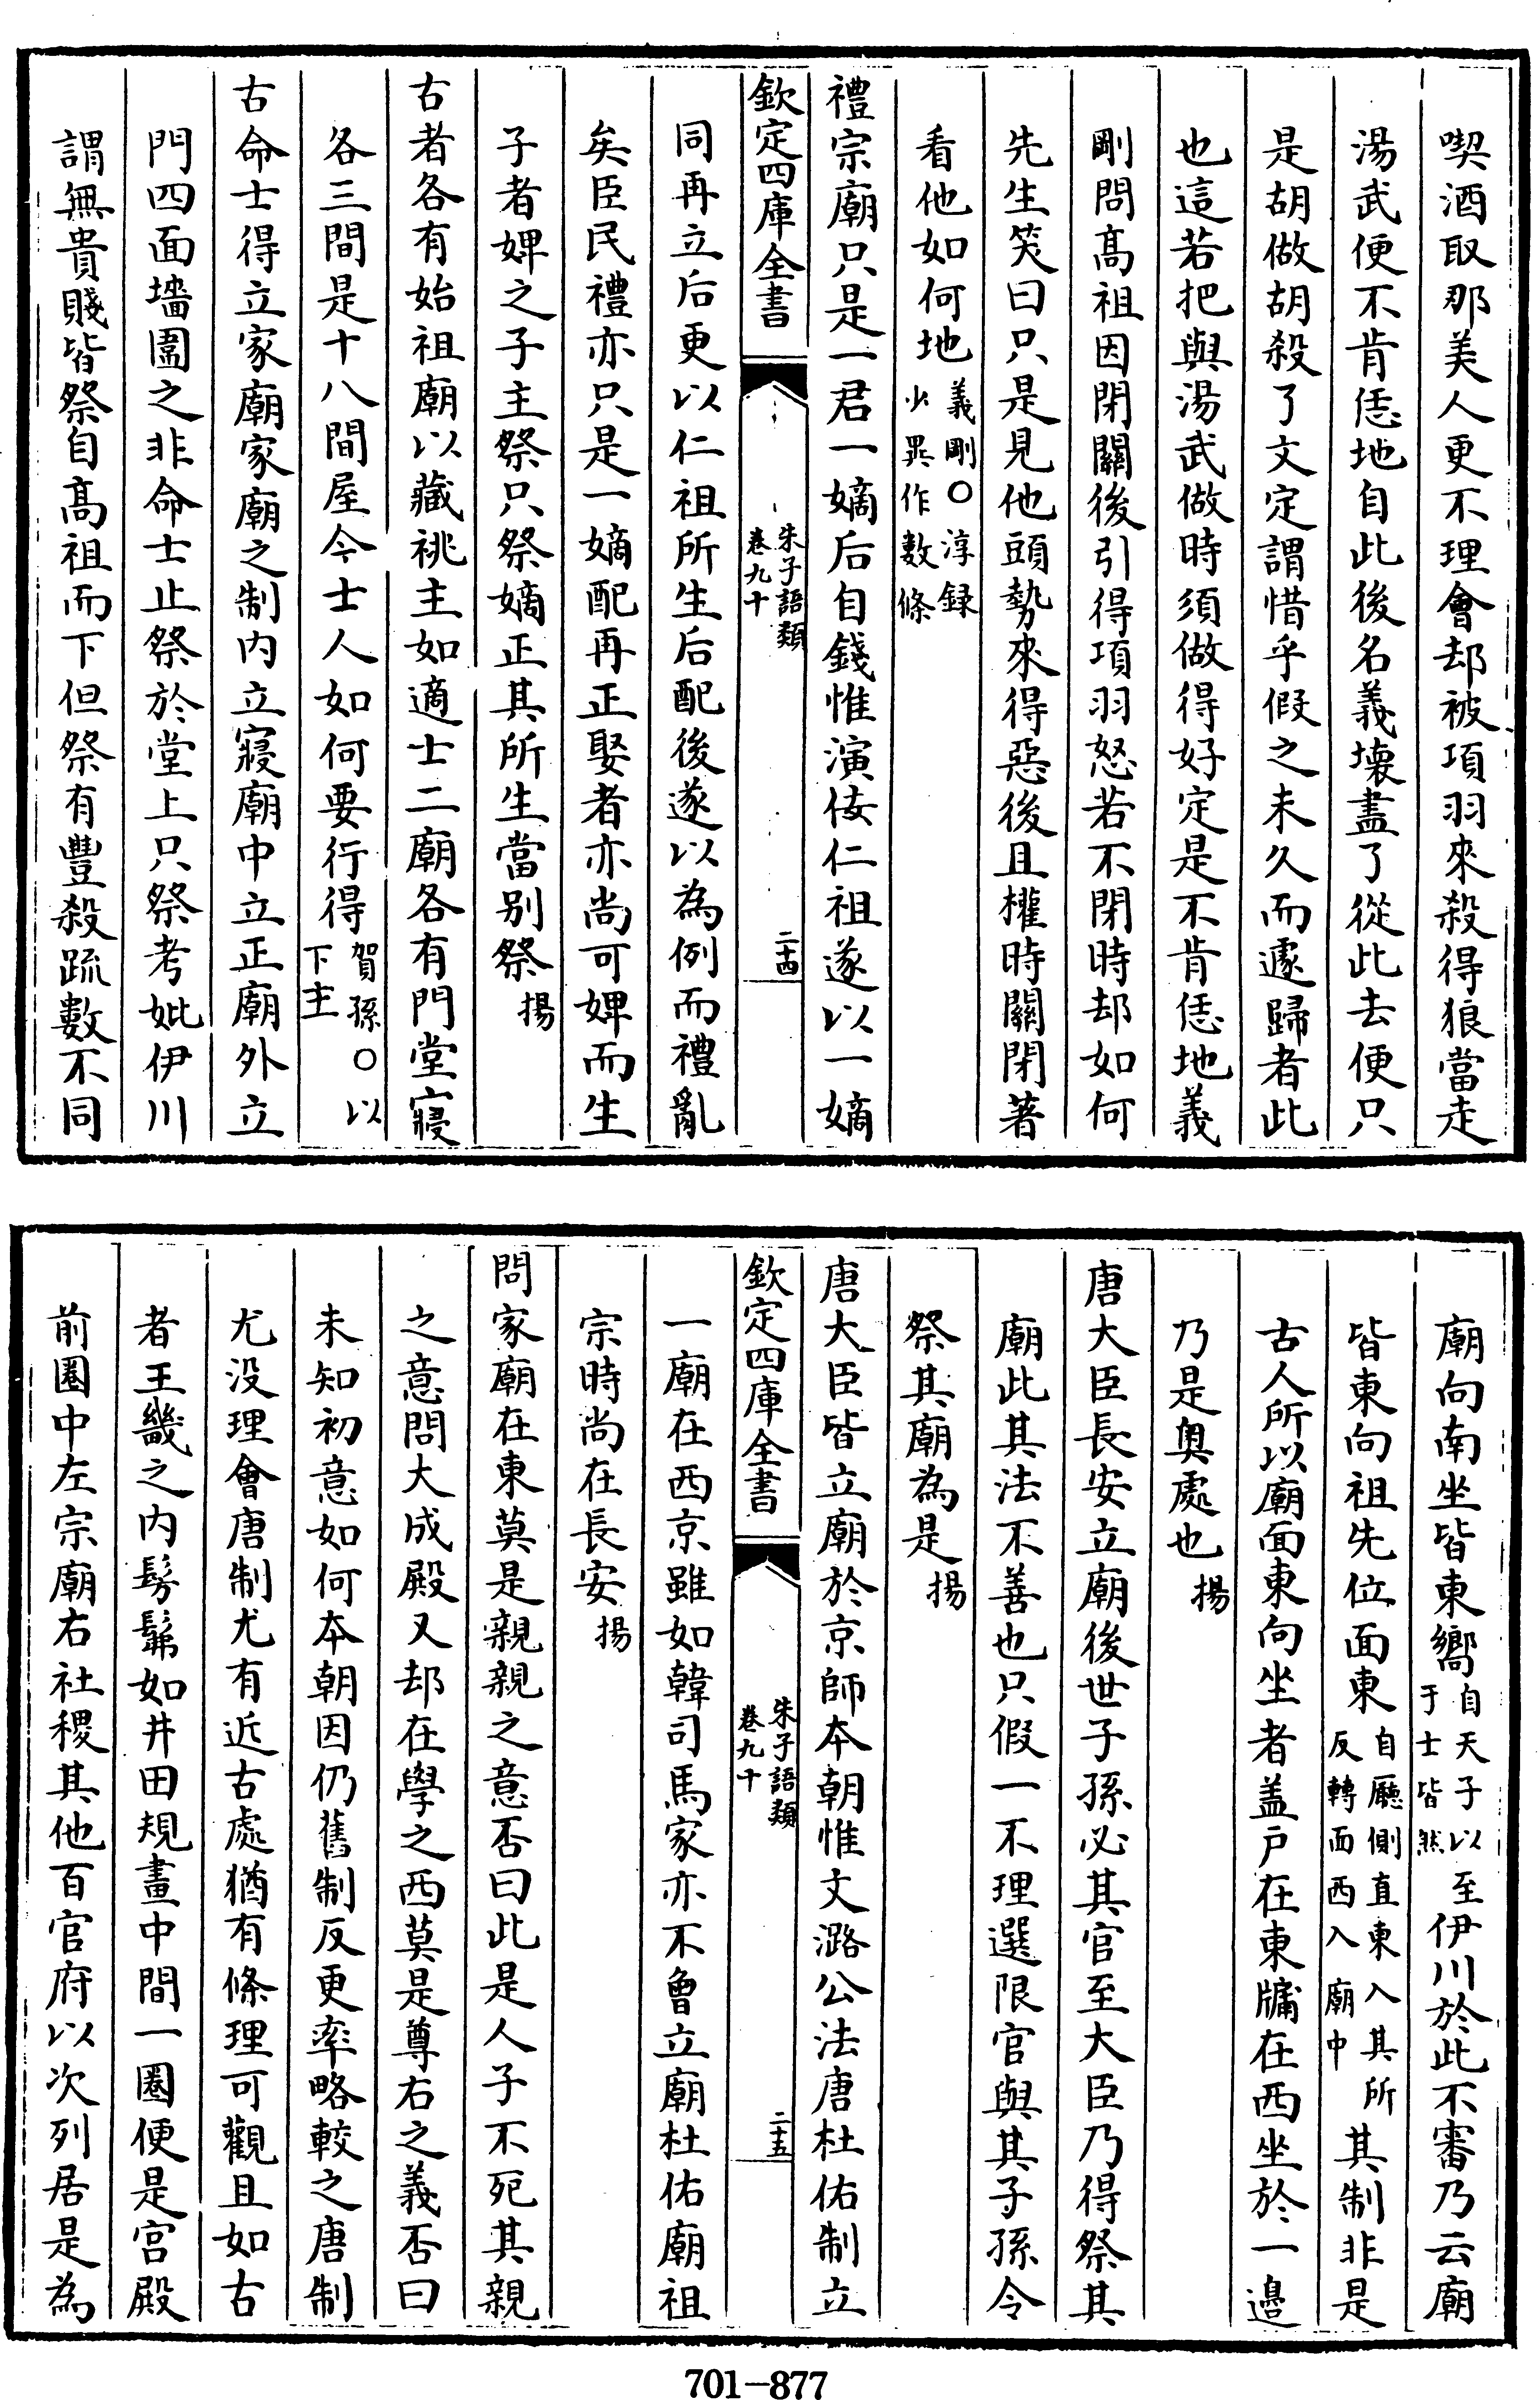 喫酒取那美人更不理會却被項羽來殺得狼當走
湯武便不肯恁地自此後名義壞盡了從此去便只
是胡做胡殺了文定謂惜乎假之未久而遽歸者此
也這若把與湯武做時須做得好定是不肯恁地義
剛問髙祖因閉關後引得項羽怒若不閉時却如何
先生笑曰只是見他頭勢來得惡後且權時關閉著
看他如何地義剛○淳録少異作數條
禮宗廟只是一君一嫡后自錢惟演佞仁祖遂以一嫡
欽定四庫全書
朱子語類
卷九十
二十四
同再立后更以仁祖所生后配後遂以為例而禮亂
矣臣民禮亦只是一嫡配再正娶者亦尚可婢而生
子者婢之子主祭只祭嫡正其所生當别祭揚
古者各有始祖廟以藏祧主如適士二廟各有門堂寢
各三間是十八間屋今士人如何要行得賀孫○以下主
古命士得立家廟家廟之制内立寢廟中立正廟外立
門四面墻圍之非命士止祭於堂上只祭考妣伊川
謂無貴賤皆祭自髙祖而下但祭有豐殺疏數不同
廟向南坐皆東嚮自天子以至于士皆然伊川於此不審乃云廟
皆東向祖先位面東自廳側直東入其所反轉面西入廟中其制非是
古人所以廟面東向坐者盖戸在東牖在西坐於一邉
乃是奥處也揚
唐大臣長安立廟後世子孫必其官至大臣乃得祭其
廟此其法不善也只假一不理選限官與其子孫令
祭其廟為是揚
唐大臣皆立廟於京師本朝惟文潞公法唐杜佑制立
欽定四庫全書
朱子語類
卷九十
二十五
一廟在西京雖如韓司馬家亦不曾立廟杜佑廟祖
宗時尚在長安揚
問家廟在東莫是親親之意否曰此是人子不死其親
之意問大成殿又却在學之西莫是尊右之義否曰
未知初意如何本朝因仍舊制反更率略較之唐制
尤没理會唐制尤有近古處猶有條理可觀且如古
者王畿之内髣髴如井田規畫中間一圈便是宫殿
前圈中左宗廟右社稷其他百官府以次列居是為
701-877